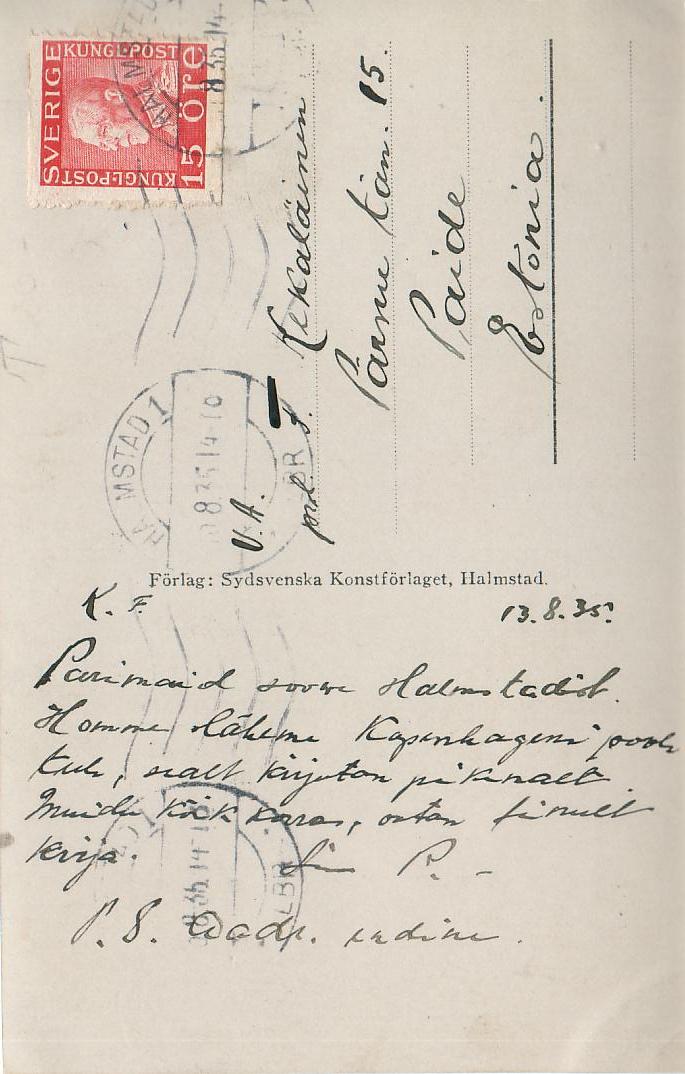 SVERIGE
KUNGL.POST
15 ÖRE
KUNGL.POST
HALMSTAD 1
8.35.14-10
LBR
V.A.
prl. J. Kekäläinen
Pärnu tän. 15.
Paide
Estonia.
Förlag: Sydsvenska Konstförlaget, Halmstad.
K. F.
13.8.35.
Parimaid soove Halmstadist.
Homme läheme Kopenhageni poole
teele, sealt kirjutan pikemalt.
Muidu kõik korras, ootan sinult
kirja.
Sinu R.
P.S. Aadr. endine.